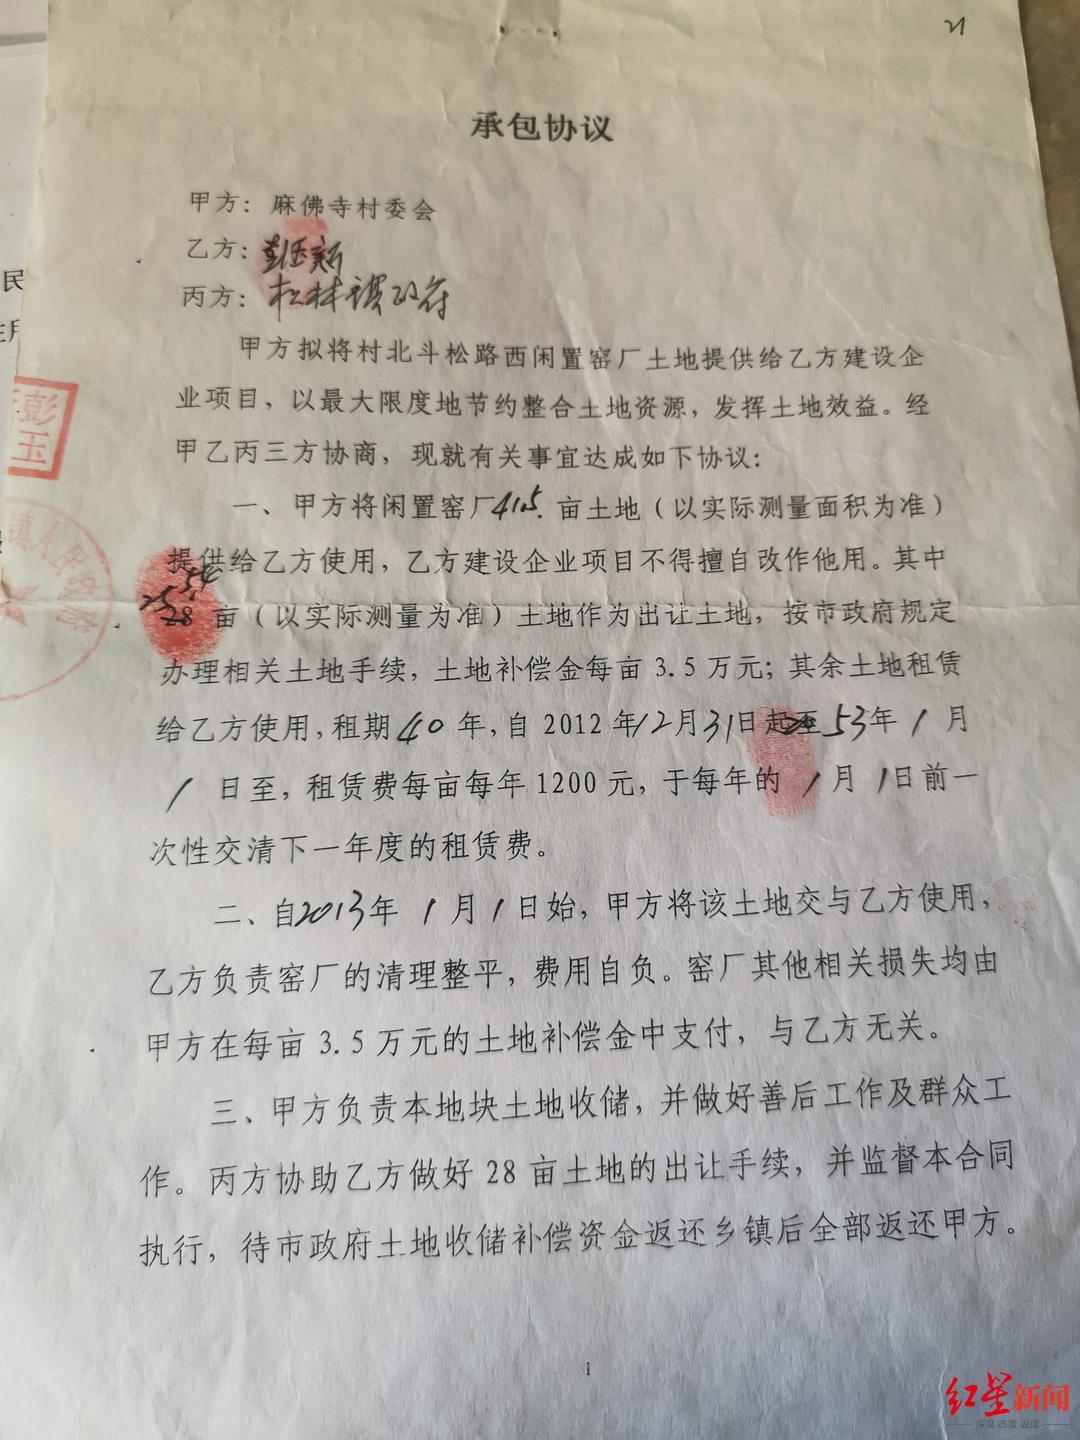 21
承包协议
甲方：麻佛寺村委会
乙方：彭玉新
丙方：松林镇政府
甲方拟将村北斗松路西闲置窑厂土地提供给乙方建设企
业项目，以最大限度地节约整合土地资源，发挥土地效益。经
甲乙丙三方协商，现就有关事宜达成如下协议：
一、甲方将闲置窑厂41.5.亩土地（以实际测量面积为准）
提供给乙方使用，乙方建设企业项目不得擅自改作他用。其中
25.54
28 亩（以实际测量为准）土地作为出让土地，按市政府规定
办理相关土地手续，土地补偿金每亩 3.5 万元；其余土地租赁
给乙方使用，租期40年，自 2012年12月31日起至 53年 1 月
1 日至，租赁费每亩每年 1200 元，于每年的 1月 1日前一
次性交清下一年度的租赁费。
二、自2013年 1月1日始，甲方将该土地交与乙方使用，
乙方负责窑厂的清理整平，费用自负。窑厂其他相关损失均由
甲方在每亩 3.5 万元的土地补偿金中支付，与乙方无关。
三、甲方负责本地块土地收储，并做好善后工作及群众工
作。丙方协助乙方做好 28 亩土地的出让手续，并监督本合同
执行，待市政府土地收储补偿资金返还乡镇后全部返还甲方。
1
民
彭
玉
镇人民政府
红星新闻
深度 态度 温度